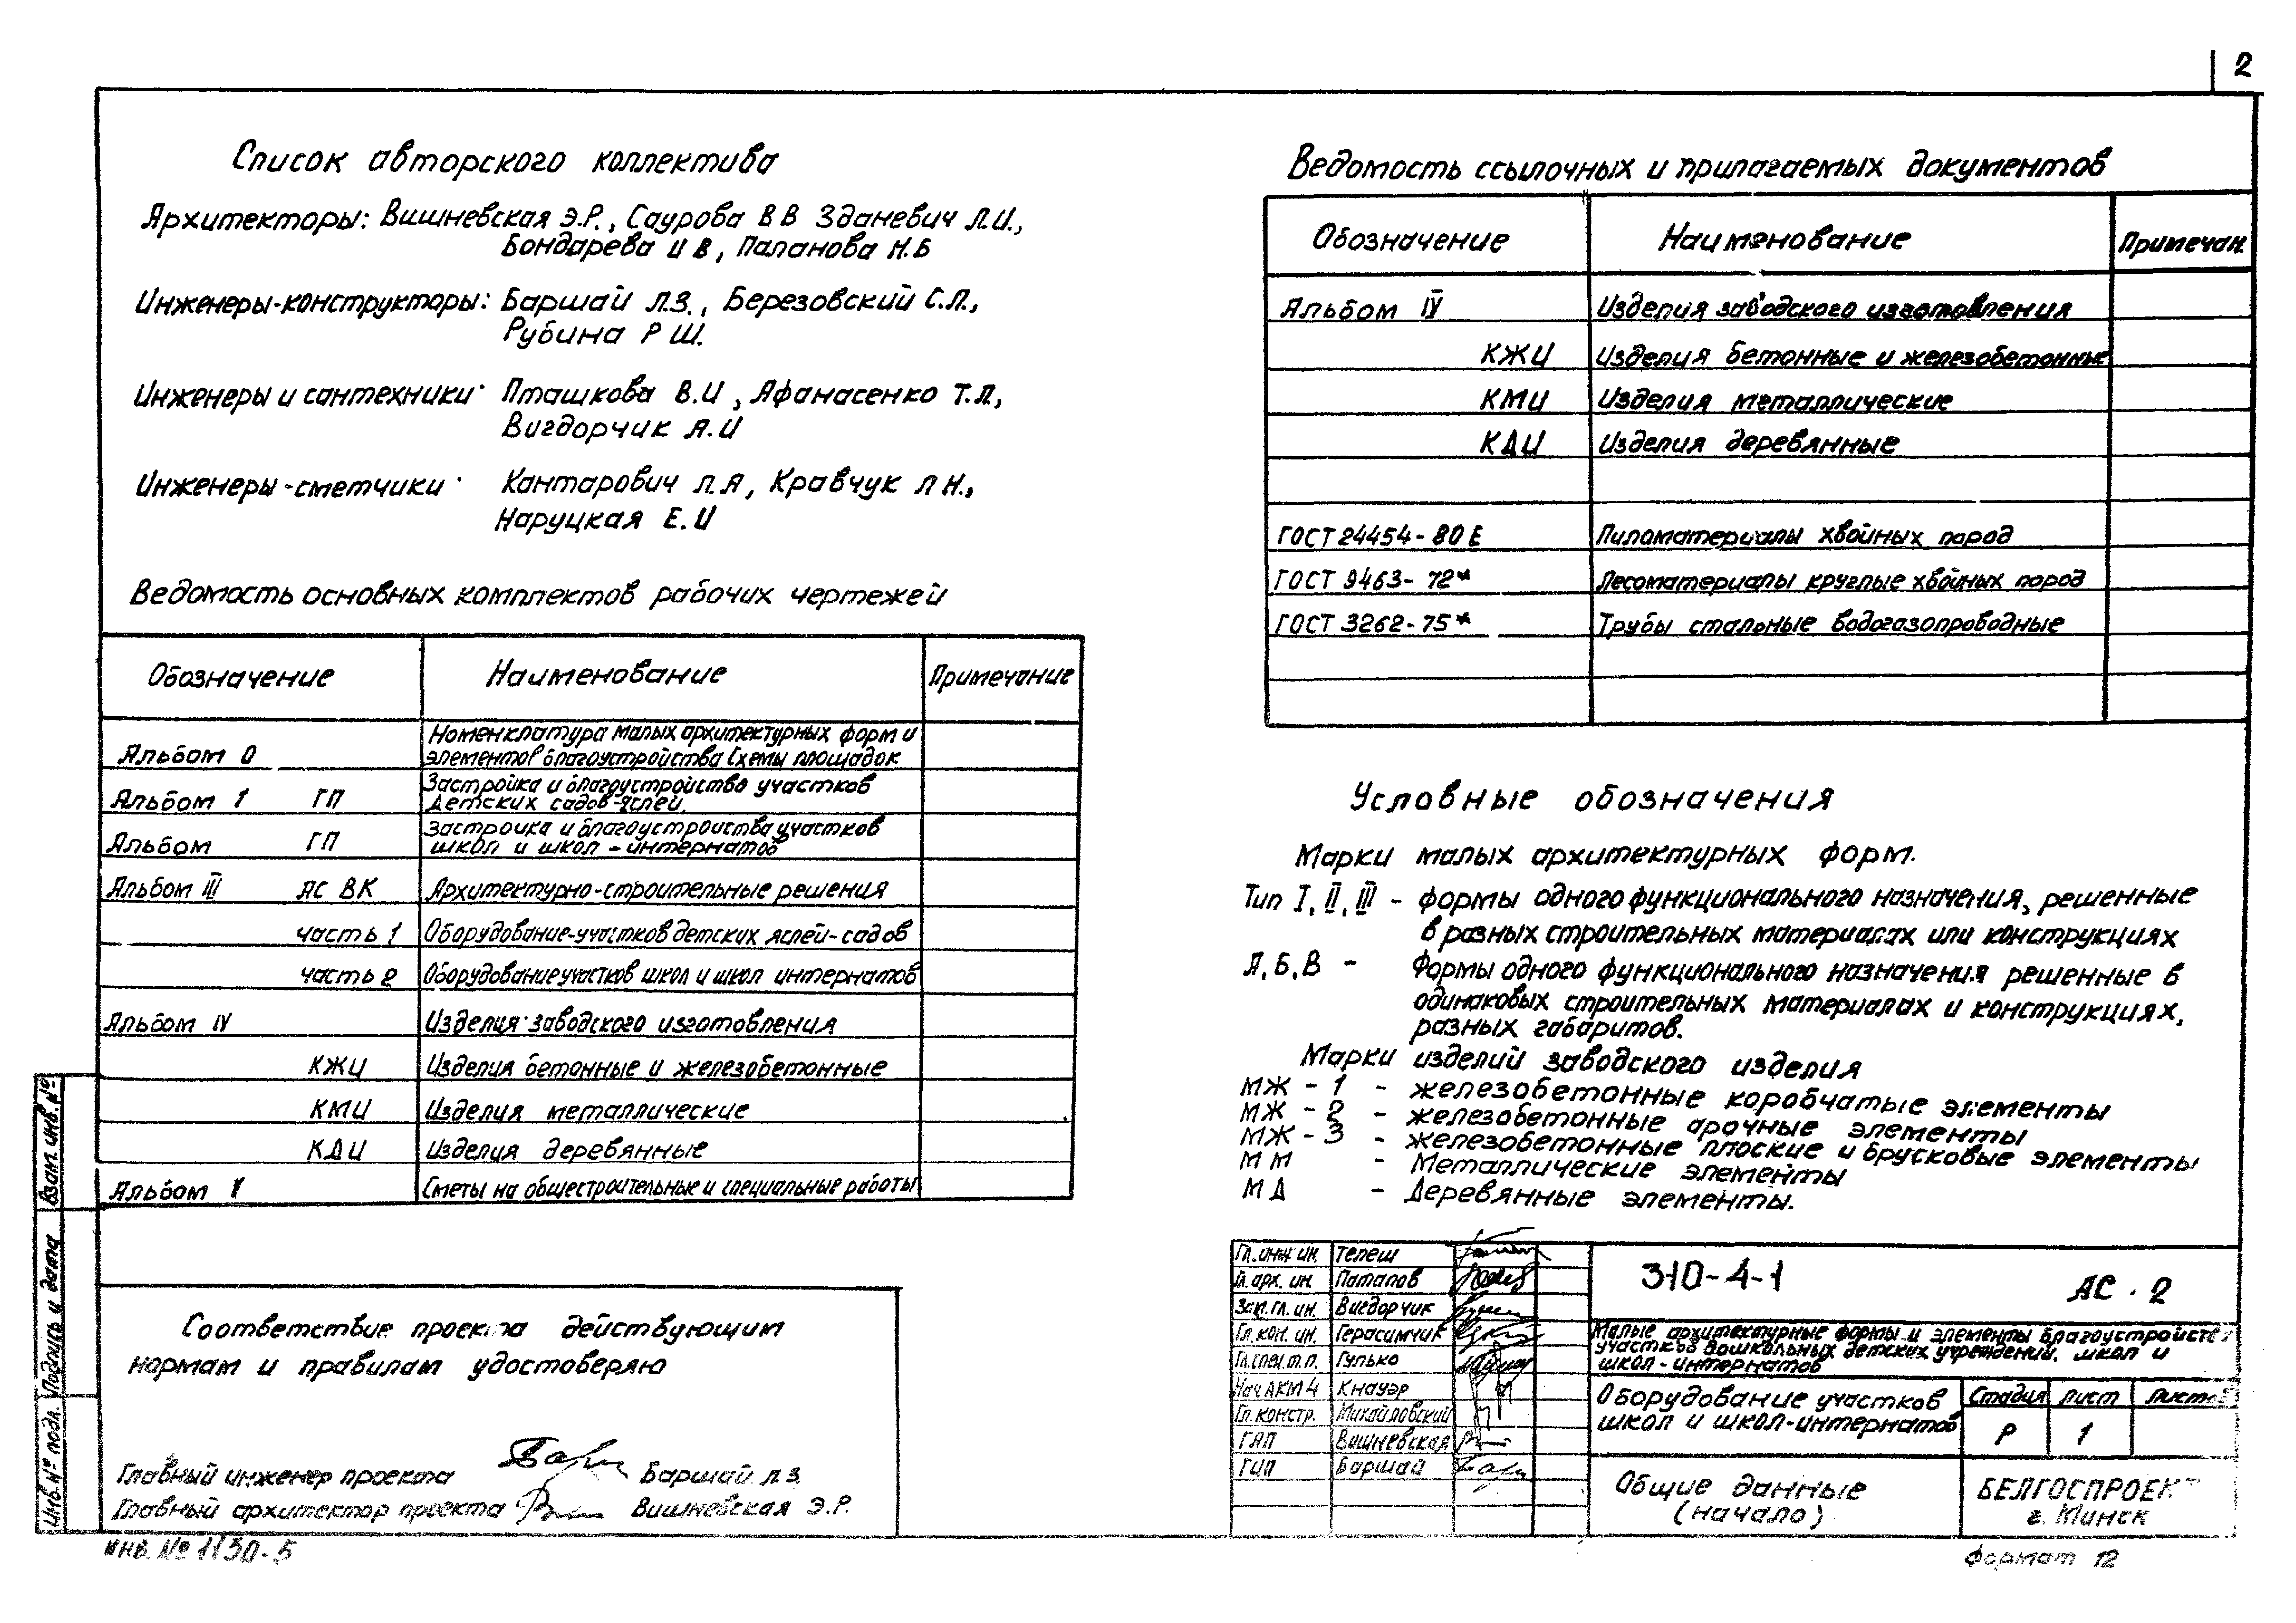 2
Список авторского коллектива
Архитекторы: Вишневская Э.Р., Саурова В В Зданевич Л.И.,
Бондарева И В, Папанова Н.Б
Инженеры-конструкторы: Баршай Л.З., Березовский С.Л.,
Рубина Р Ш.
Инженеры и сантехники Пташкова В.И, Афанасенко Т.Л,
Вигдорчик А.И
Инженеры-сметчики Кантарович Л.А, Кравчук Л Н.,
Наруцкая Е.И
Ведомость основных комплектов рабочих чертежей
Обозначение Наименование Примечание
Номенклатура малых архитектурных форм и
Альбом 0 элементов благоустройства Схемы площадок
Застройка и благоустройство участков
Альбом 1 ГП детских садов-яслей.
Застройка и благоустройства участков
Альбом ГП школ и школ-интернатов
Альбом III АС ВК Архитектурно-строительные решения
часть 1 Оборудование участков детских яслей-садов
часть 2 Оборудование участков школ и школ интернатов
Альбом IV Изделия заводского изготовления
КЖИ Изделия бетонные и железобетонные
КМИ Изделия металлические
КДИ Изделия деревянные
Альбом V Сметы на общестроительные и специальные работы
Соответствие проекта действующим
нормам и правилам удостоверяю
Главный инженер проекта Баршай Л.З.
Главный архитектор проекта Вишневская Э.Р.
Инв. № подл. Подпись и дата Взам. инв. №
инв. № 1130-5
Ведомость ссылочных и прилагаемых документов
Обозначение Наименование Примечан.
Альбом IV Изделия заводского изготовления
КЖИ Изделия бетонные и железобетонные
КМИ Изделия металлические
КДИ Изделия деревянные
ГОСТ 24454-80Е Пиломатериалы хвойных пород
ГОСТ 9463-72* Лесоматериалы круглые хвойных пород
ГОСТ 3262-75* Трубы стальные водогазопроводные
Условные обозначения
Марки малых архитектурных форм.
Тип I, II, III - формы одного функционального назначения, решенные
в разных строительных материалах или конструкциях
А, Б, В - Формы одного функционального назначения решенные в
одинаковых строительных материалах и конструкциях,
разных габаритов.
Марки изделий заводского изделия
МЖ - 1 - железобетонные коробчатые элементы
МЖ - 2 - железобетонные арочные элементы
МЖ - 3 - железобетонные плоские и брусковые элементы
ММ - Металлические элементы
МД - Деревянные элементы.
Гл. инж ин. Телеш
Гл. арх. ин. Патапов
Зам. гл. ин. Вигдорчик
Гл. кон. ин. Герасимчик
Гл. спец. т. п. Гулько
Нач АКМ 4 Кнауэр
Гл. констр. Михайловский
ГАП Вишневская
ГИП Баршай
310-4-1 АС . 2
Малые архитектурные формы и элементы благоустройств
участков дошкольных детских учреждений, школ и
школ-интернатов
Оборудование участков
школ и школ-интернатов
Стадия Лист Листов
Р 1
Общие данные
(начало)
БЕЛГОСПРОЕКТ
г. Минск
Формат 12